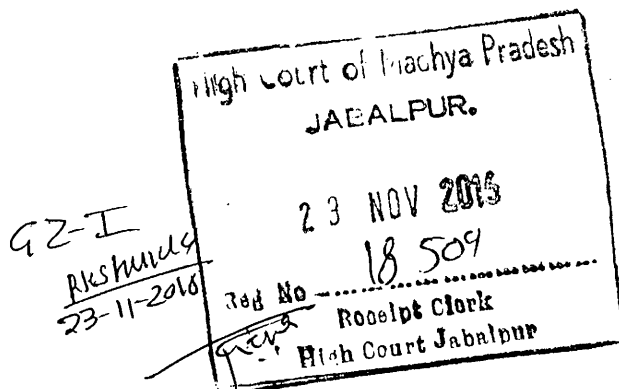 High Court of Madhya Pradesh
JABALPUR.
23 NOV 2016
18504
Red No
Receipt Clerk
High Court Jabalpur
GZ-I
23-11-2016